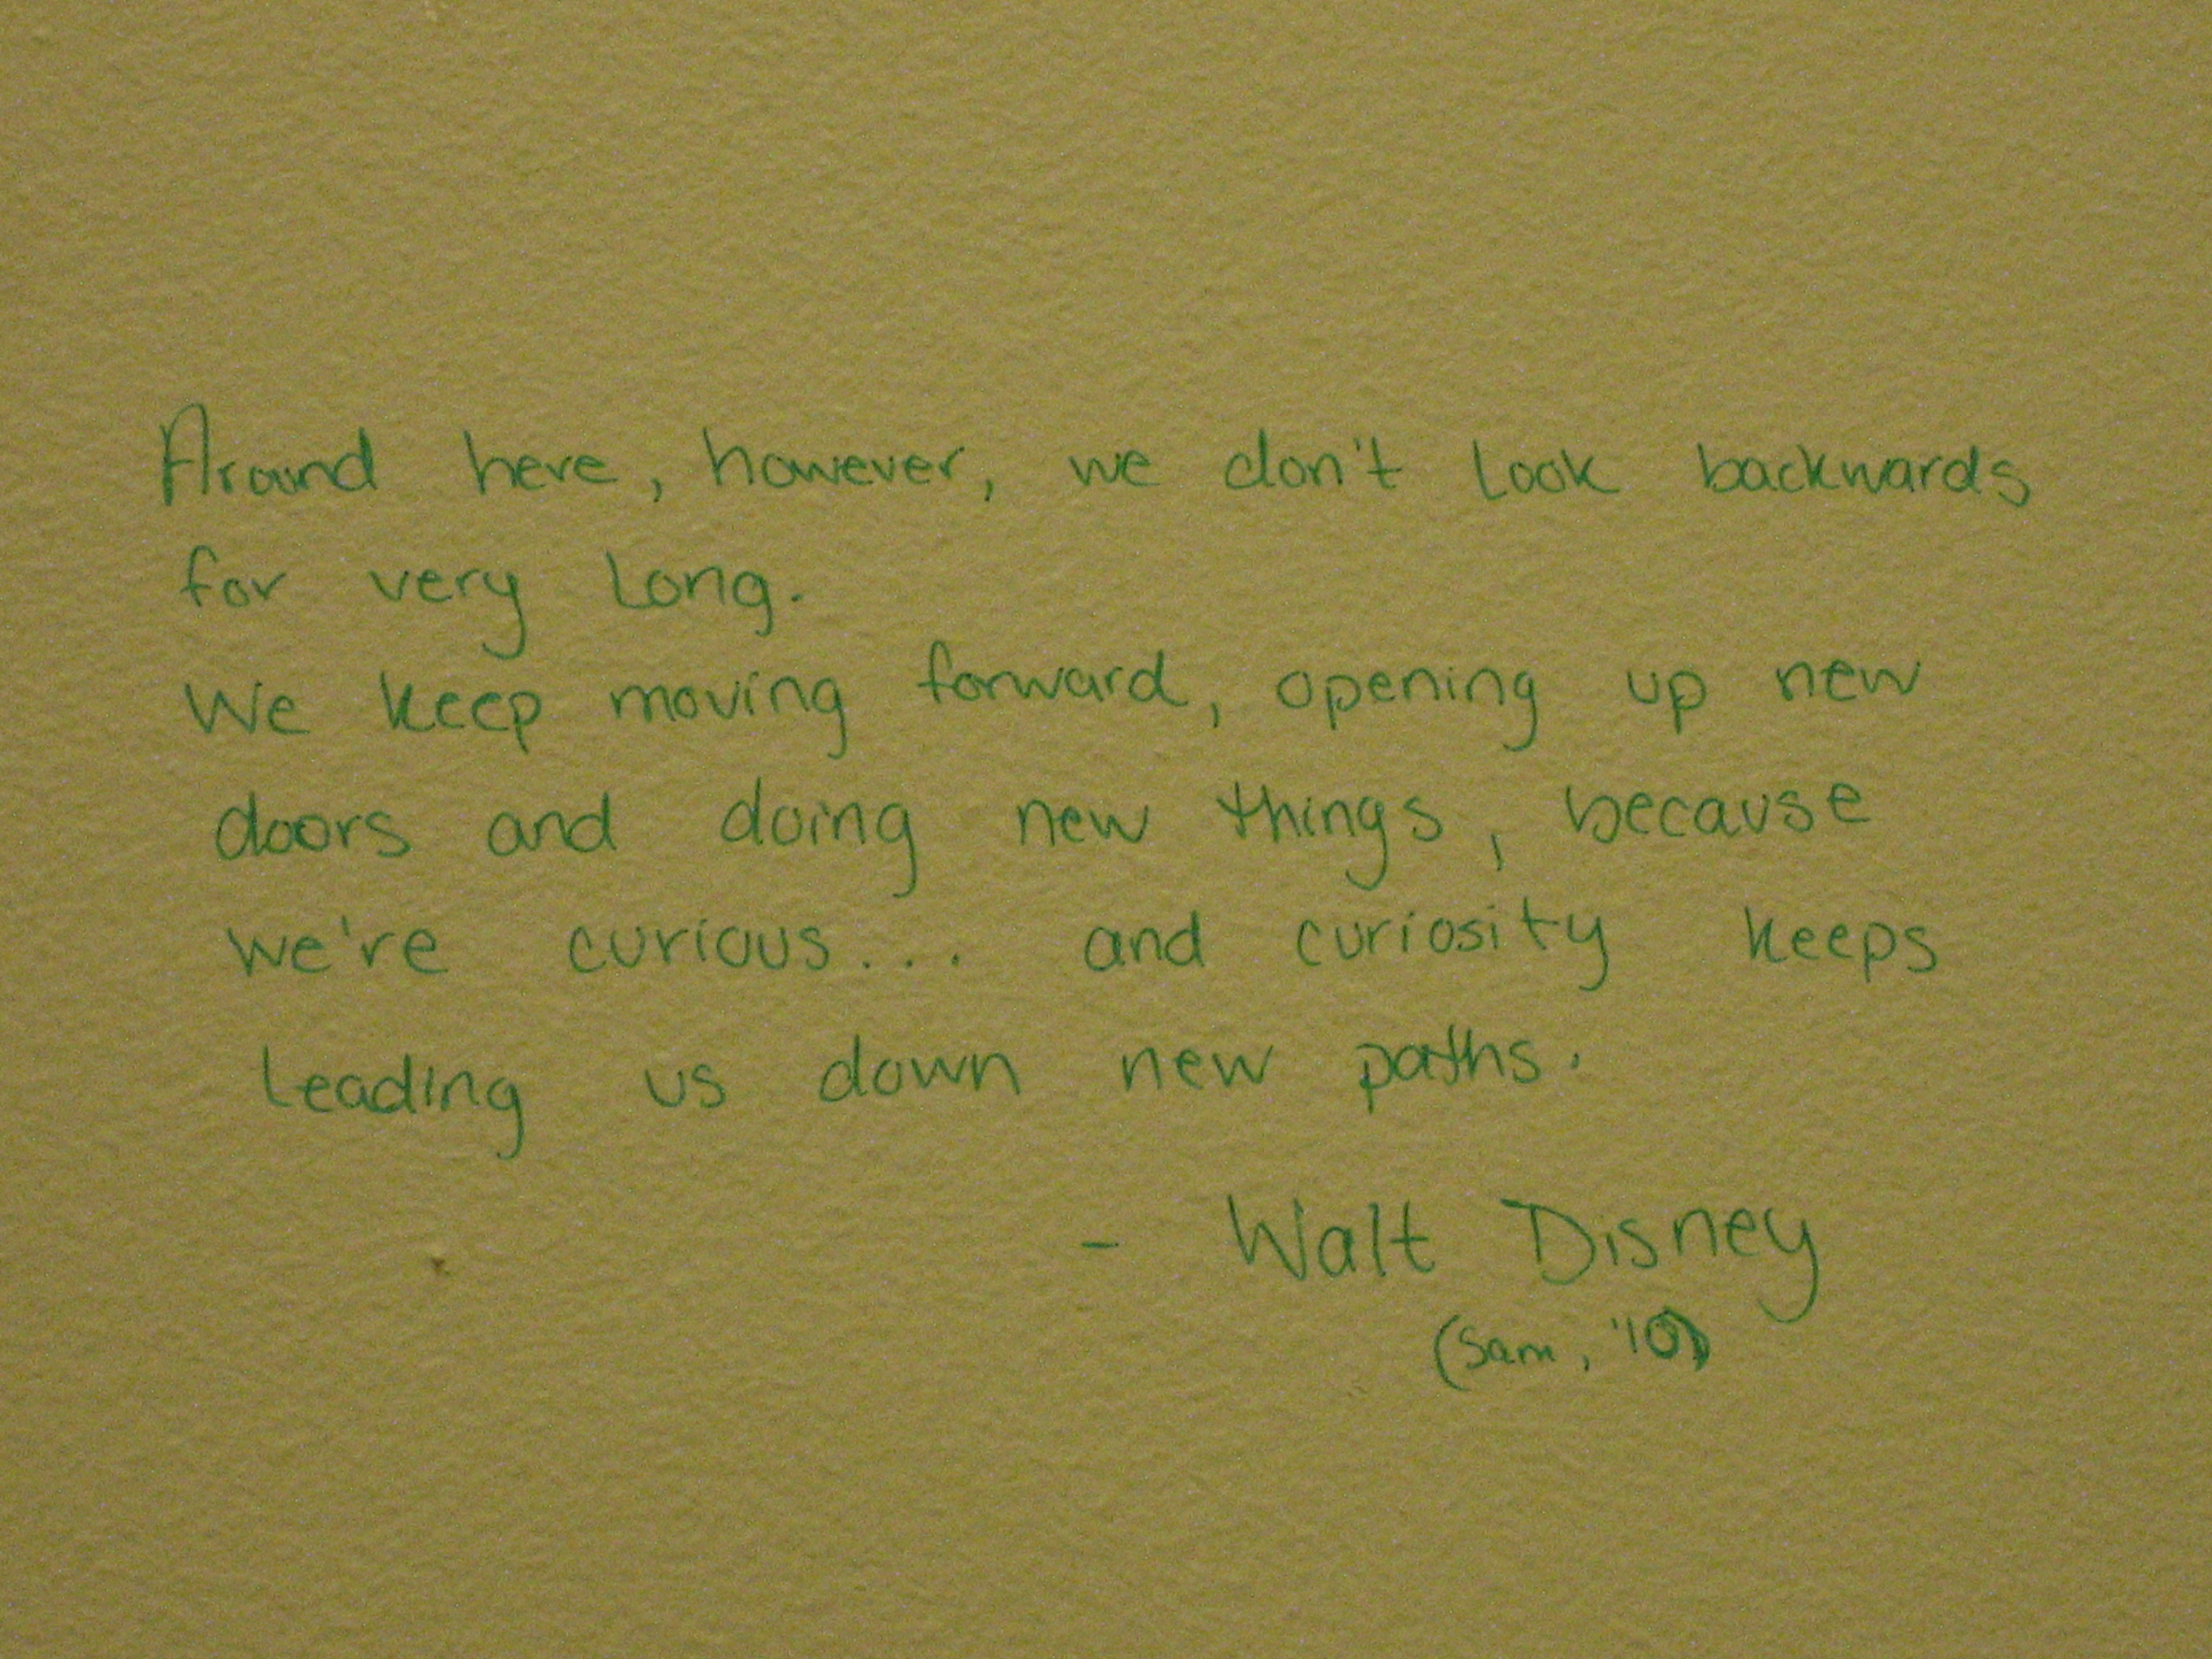 Around here, however, we don't look backwards
for very long.
We keep moving forward, opening up new
doors and doing new things, because
we're curious... and curiosity keeps
leading us down new paths.
- Walt Disney
(Sam, '10)